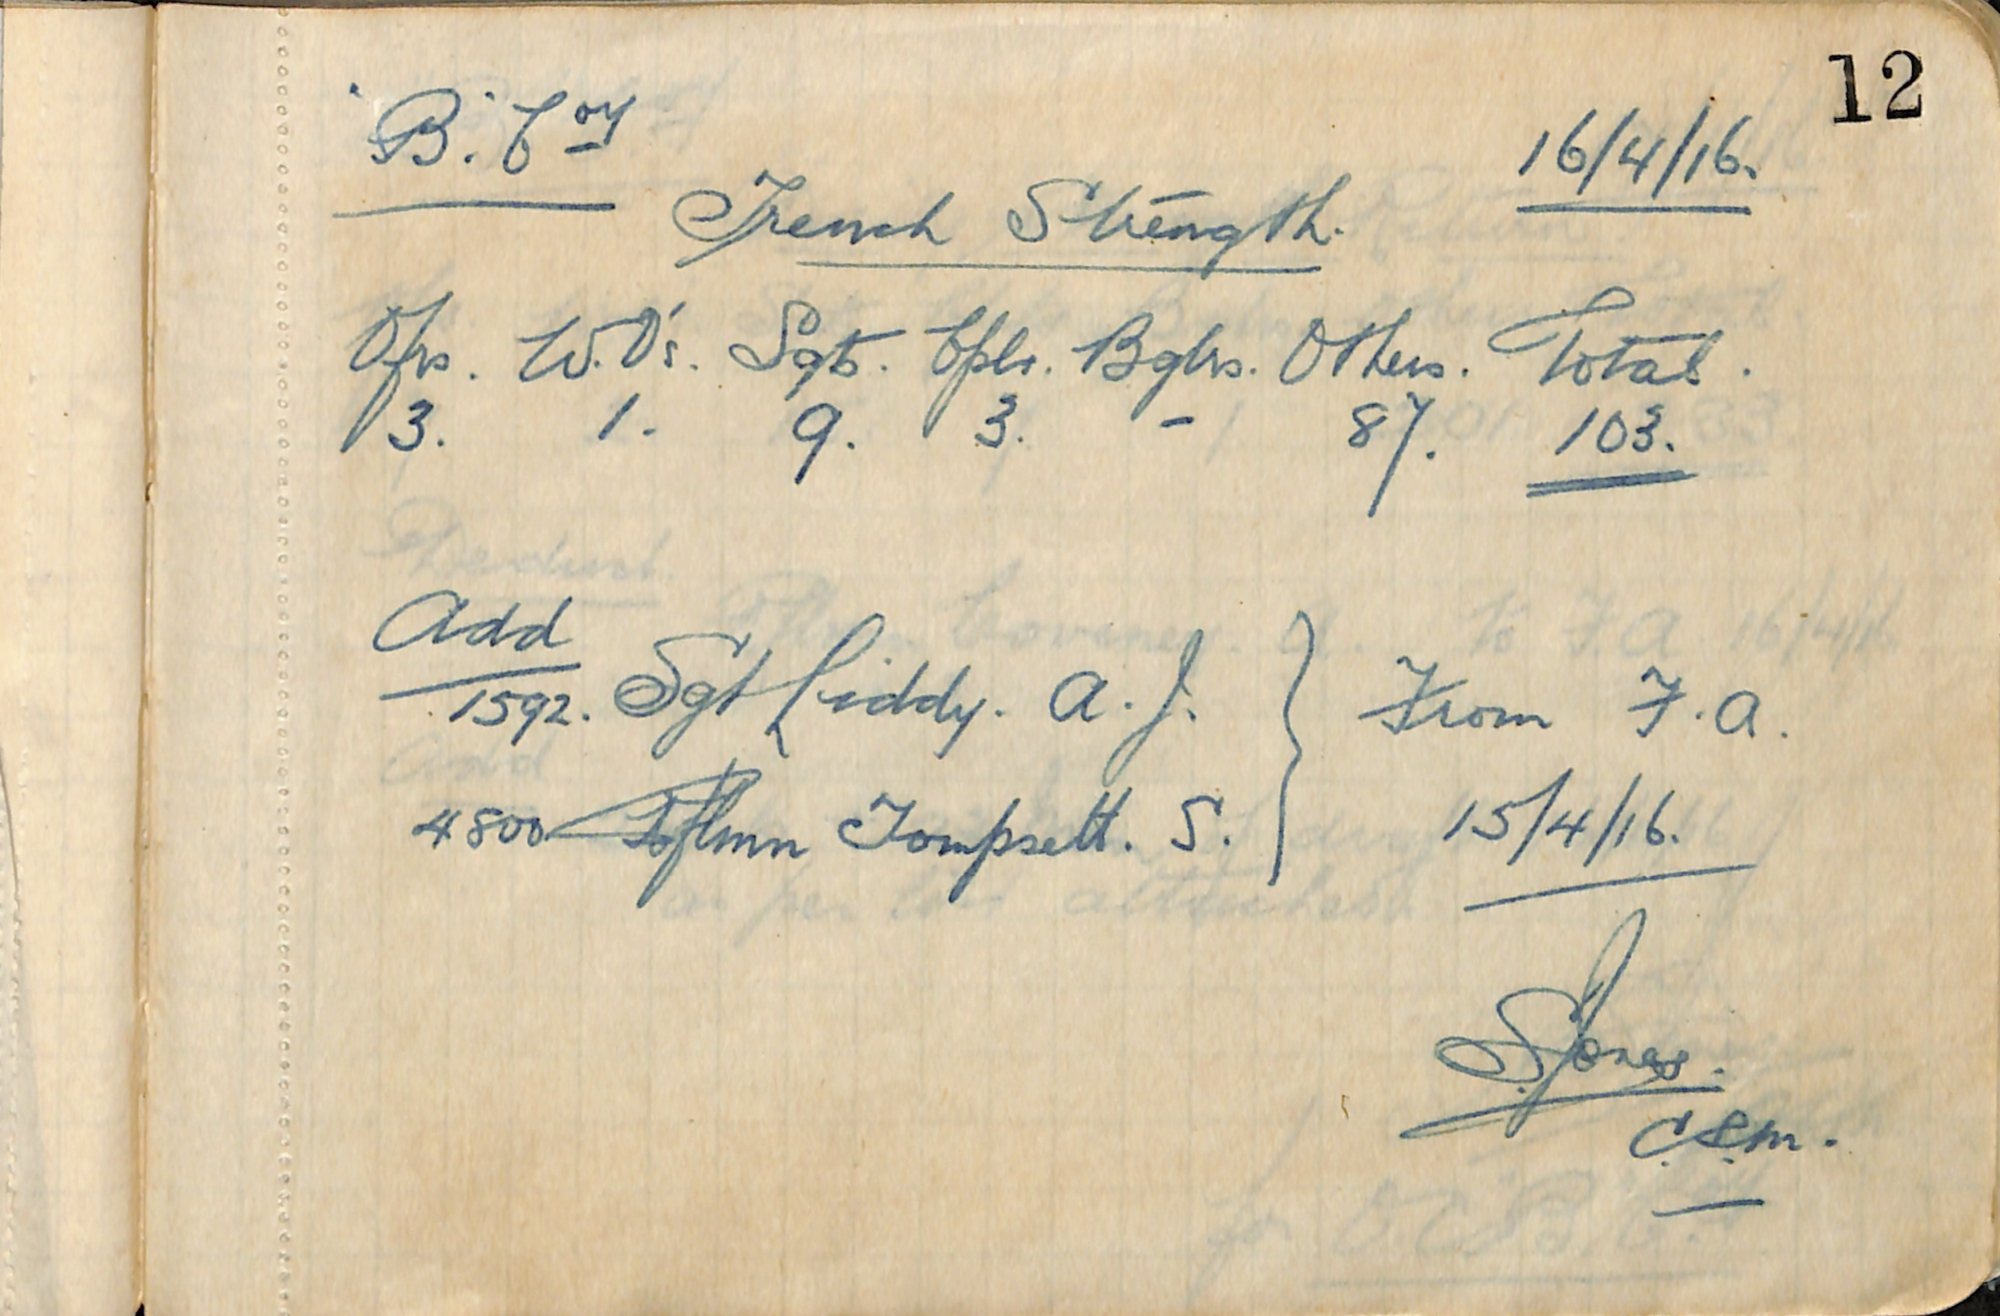 12
'B' Coy
16/4/16.
Trench Strength.
Ofrs. W.O's. Sgts. Cpls. Bglrs. Others. Total.
3. 1. 9. 3. - 87. 103.
Add
1592. Sgt Liddy. A. J. } From F. A.
4800 Rflmn Tompsett. S. } 15/4/16.
S Jones.
C.S.M.